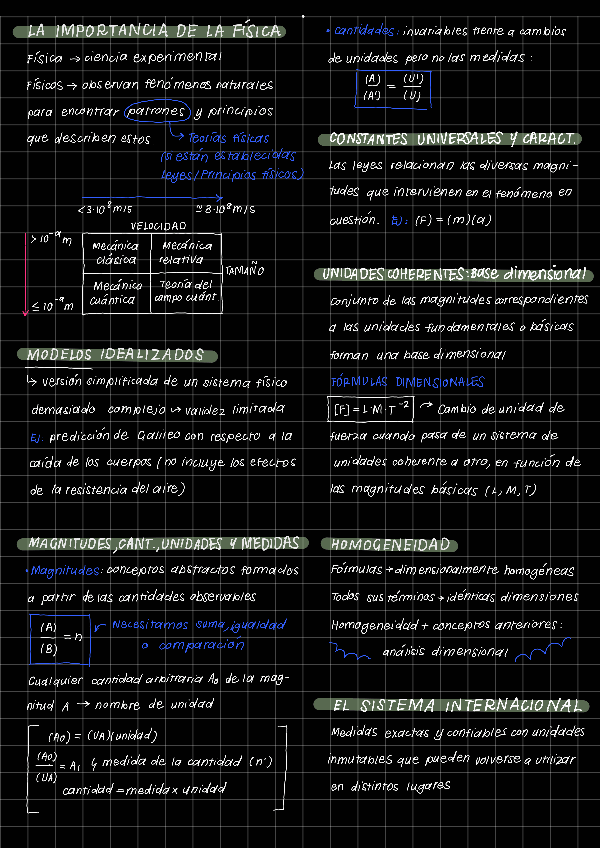 LA IMPORTANCIA DE LA FÍSICA
Física → ciencia experimental
Físicos → observan fenómenos naturales
para encontrar patrones y principios
que describen estos
↳ Teorías físicas
(si están establecidas
leyes/Principios físicos)
<3·10⁸ m/s ≈3·10⁸ m/s
VELOCIDAD
>10⁻⁹ m
Mecánica clásica
Mecánica relativa
TAMAÑO
≤10⁻⁹ m
Mecánica cuántica
Teoría del campo cuánt.
MODELOS IDEALIZADOS
↳ versión simplificada de un sistema físico
demasiado complejo ↪ validez limitada
Ej. predicción de Galileo con respecto a la
caída de los cuerpos (no incluye los efectos
de la resistencia del aire)
MAGNITUDES, CANT., UNIDADES Y MEDIDAS
· Magnitudes: conceptos abstractos formados
a partir de las cantidades observables
(A)/(B) = n
Necesitamos suma, igualdad
o comparación
Cualquier cantidad arbitraria A₀ de la mag-
nitud A → nombre de unidad
(A₀) = (UA)(unidad)
(A₀)/(UA) = A, ↳ medida de la cantidad (n')
cantidad = medida x unidad
· Cantidades: invariables frente a cambios
de unidades pero no las medidas:
(A)/(A') = (U')/(U)
CONSTANTES UNIVERSALES Y CARACT.
Las leyes relacionan las diversas magni-
tudes que intervienen en el fenómeno en
cuestión. Ej: (F) = (m)(a)
UNIDADES COHERENTES: Base dimensional
conjunto de las magnitudes correspondientes
a las unidades fundamentales o básicas
forman una base dimensional
FÓRMULAS DIMENSIONALES
[F] = L·M·T⁻² → Cambio de unidad de
fuerza cuando pasa de un sistema de
unidades coherente a otro, en función de
las magnitudes básicas (L, M, T)
HOMOGENEIDAD
Fórmulas → dimensionalmente homogéneas
Todos sus términos → idénticas dimensiones
Homogeneidad + conceptos anteriores:
análisis dimensional
EL SISTEMA INTERNACIONAL
Medidas exactas y confiables con unidades
inmutables que pueden volverse a utilizar
en distintos lugares